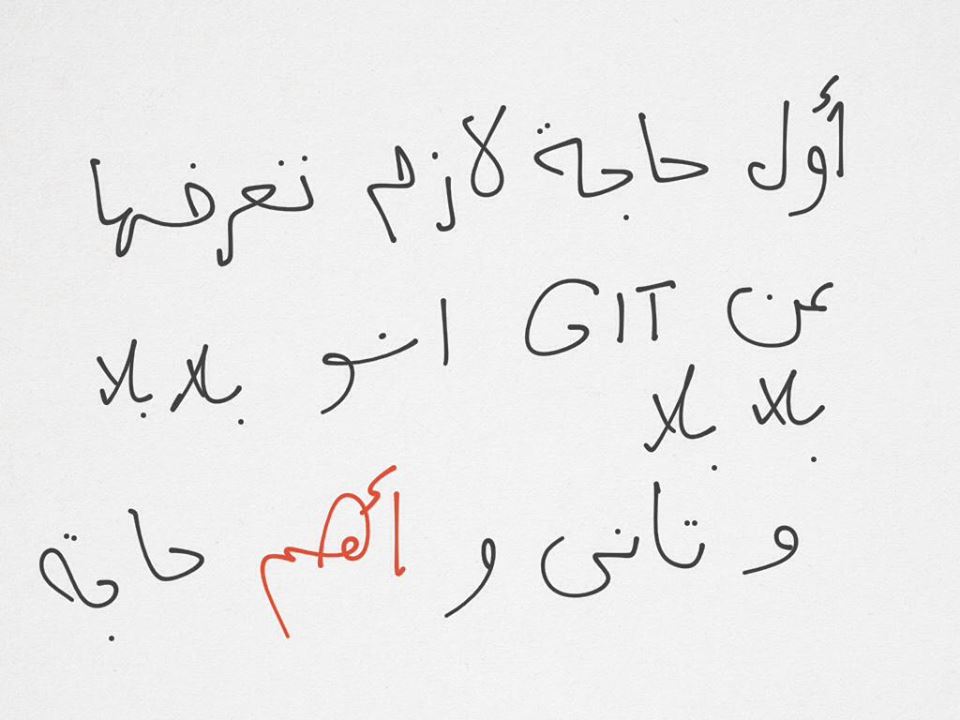 أول حاجة لازم تعرفها
عن GIT انو بلا بلا
بلا بلا
و تانى و أهم حاجة